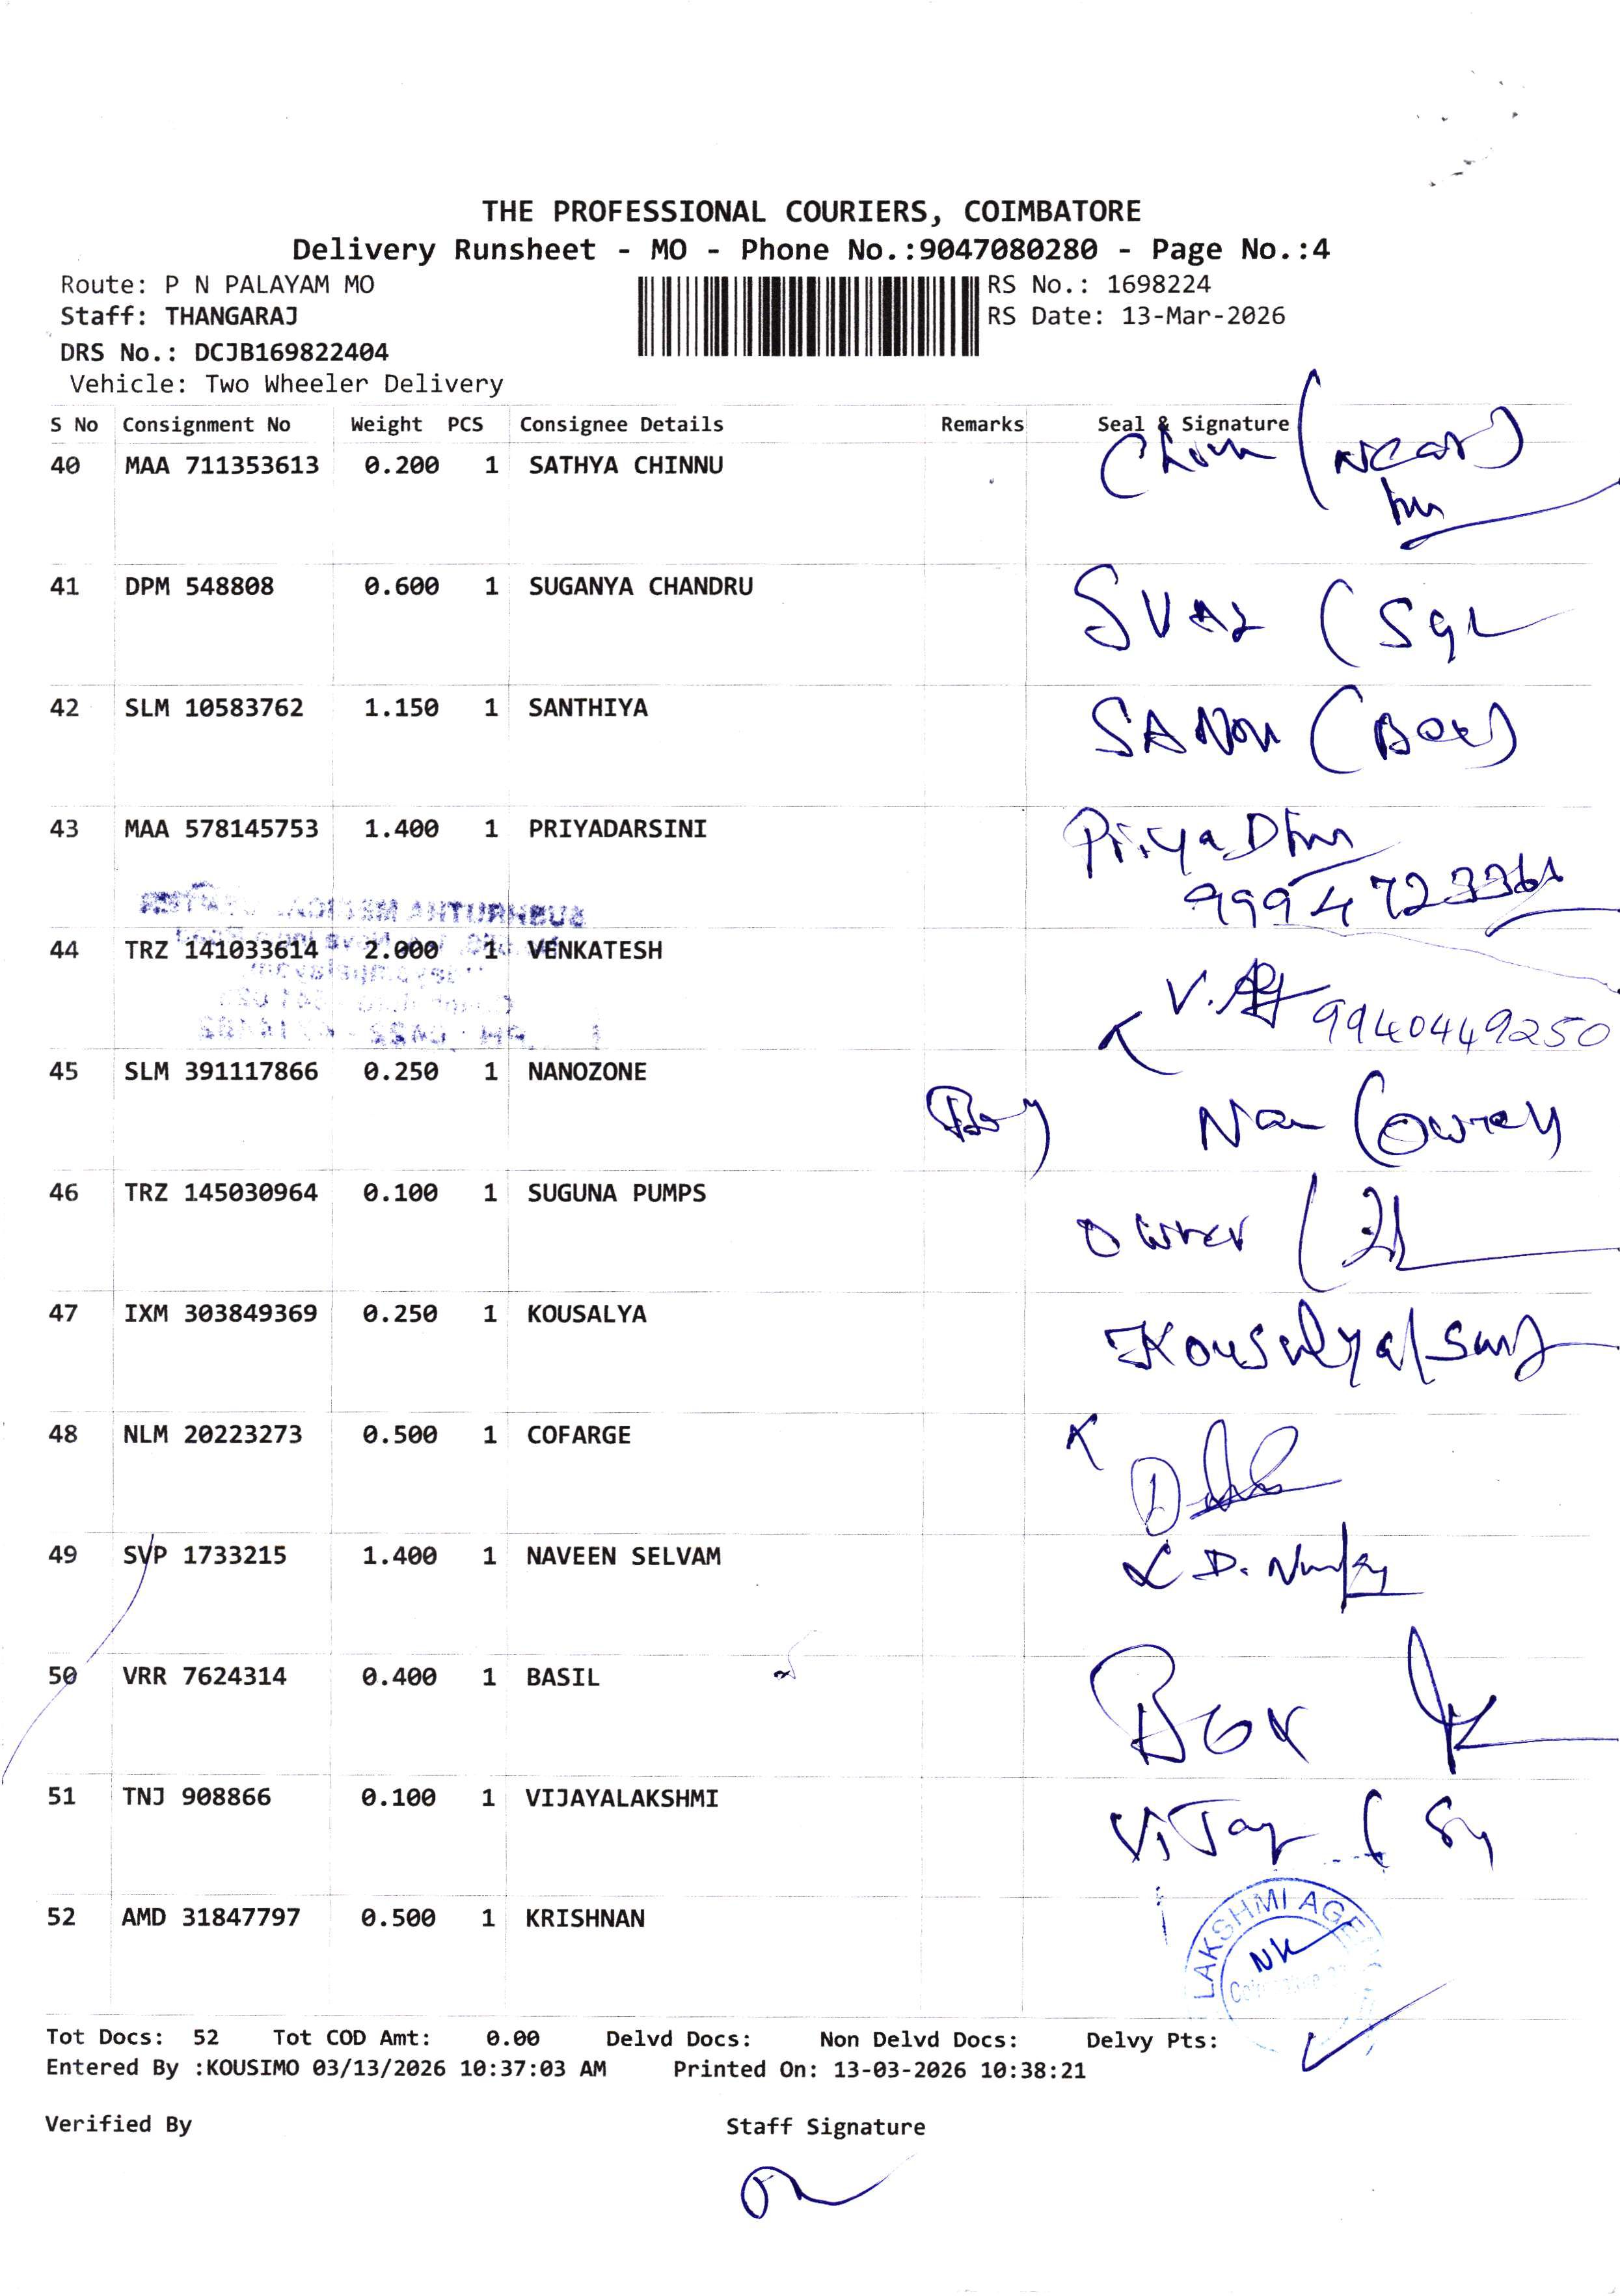 THE PROFESSIONAL COURIERS, COIMBATORE
Delivery Runsheet - MO - Phone No.:9047080280 - Page No.:4
Route: P N PALAYAM MO
RS No.: 1698224
Staff: THANGARAJ
RS Date: 13-Mar-2026
DRS No.: DCJB169822404
Vehicle: Two Wheeler Delivery
S No Consignment No Weight PCS Consignee Details Remarks Seal & Signature
40 MAA 711353613 0.200 1 SATHYA CHINNU
41 DPM 548808 0.600 1 SUGANYA CHANDRU
42 SLM 10583762 1.150 1 SANTHIYA
43 MAA 578145753 1.400 1 PRIYADARSINI
44 TRZ 141033614 2.000 1 VENKATESH
9940449250
45 SLM 391117866 0.250 1 NANOZONE
46 TRZ 145030964 0.100 1 SUGUNA PUMPS
Owner
47 IXM 303849369 0.250 1 KOUSALYA
Kousalya
48 NLM 20223273 0.500 1 COFARGE
49 SVP 1733215 1.400 1 NAVEEN SELVAM
50 VRR 7624314 0.400 1 BASIL
51 TNJ 908866 0.100 1 VIJAYALAKSHMI
52 AMD 31847797 0.500 1 KRISHNAN
LAKSHMI
NK
Tot Docs: 52 Tot COD Amt: 0.00 Delvd Docs: Non Delvd Docs: Delvy Pts:
Entered By :KOUSIMO 03/13/2026 10:37:03 AM Printed On: 13-03-2026 10:38:21
Verified By Staff Signature